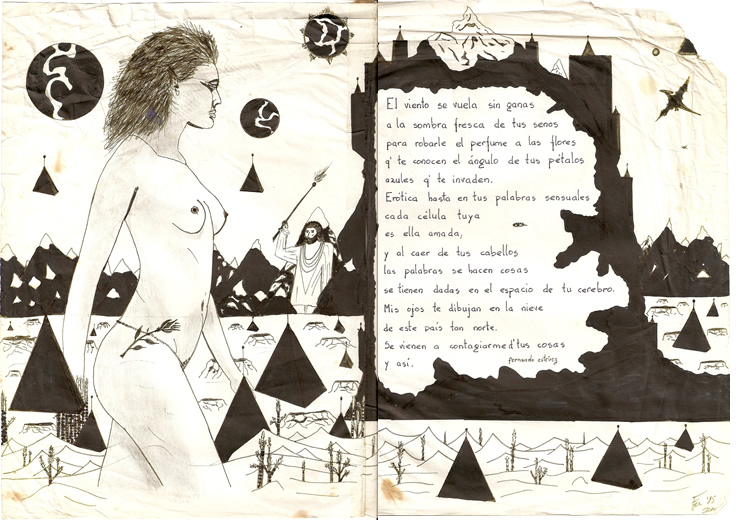 El viento se vuela sin ganas
a la sombra fresca de tus senos
para robarle el perfume a las flores
q' te conocen el ángulo de tus pétalos
azules q' te invaden.
Erótica hasta en tus palabras sensuales
cada célula tuya
es ella amada,
y al caer de tus cabellos
las palabras se hacen cosas
se tienen dadas en el espacio de tu cerebro.
Mis ojos te dibujan en la nieve
de este país tan norte.
Se vienen a contagiarme d' tus cosas
y así.
fernando estévez